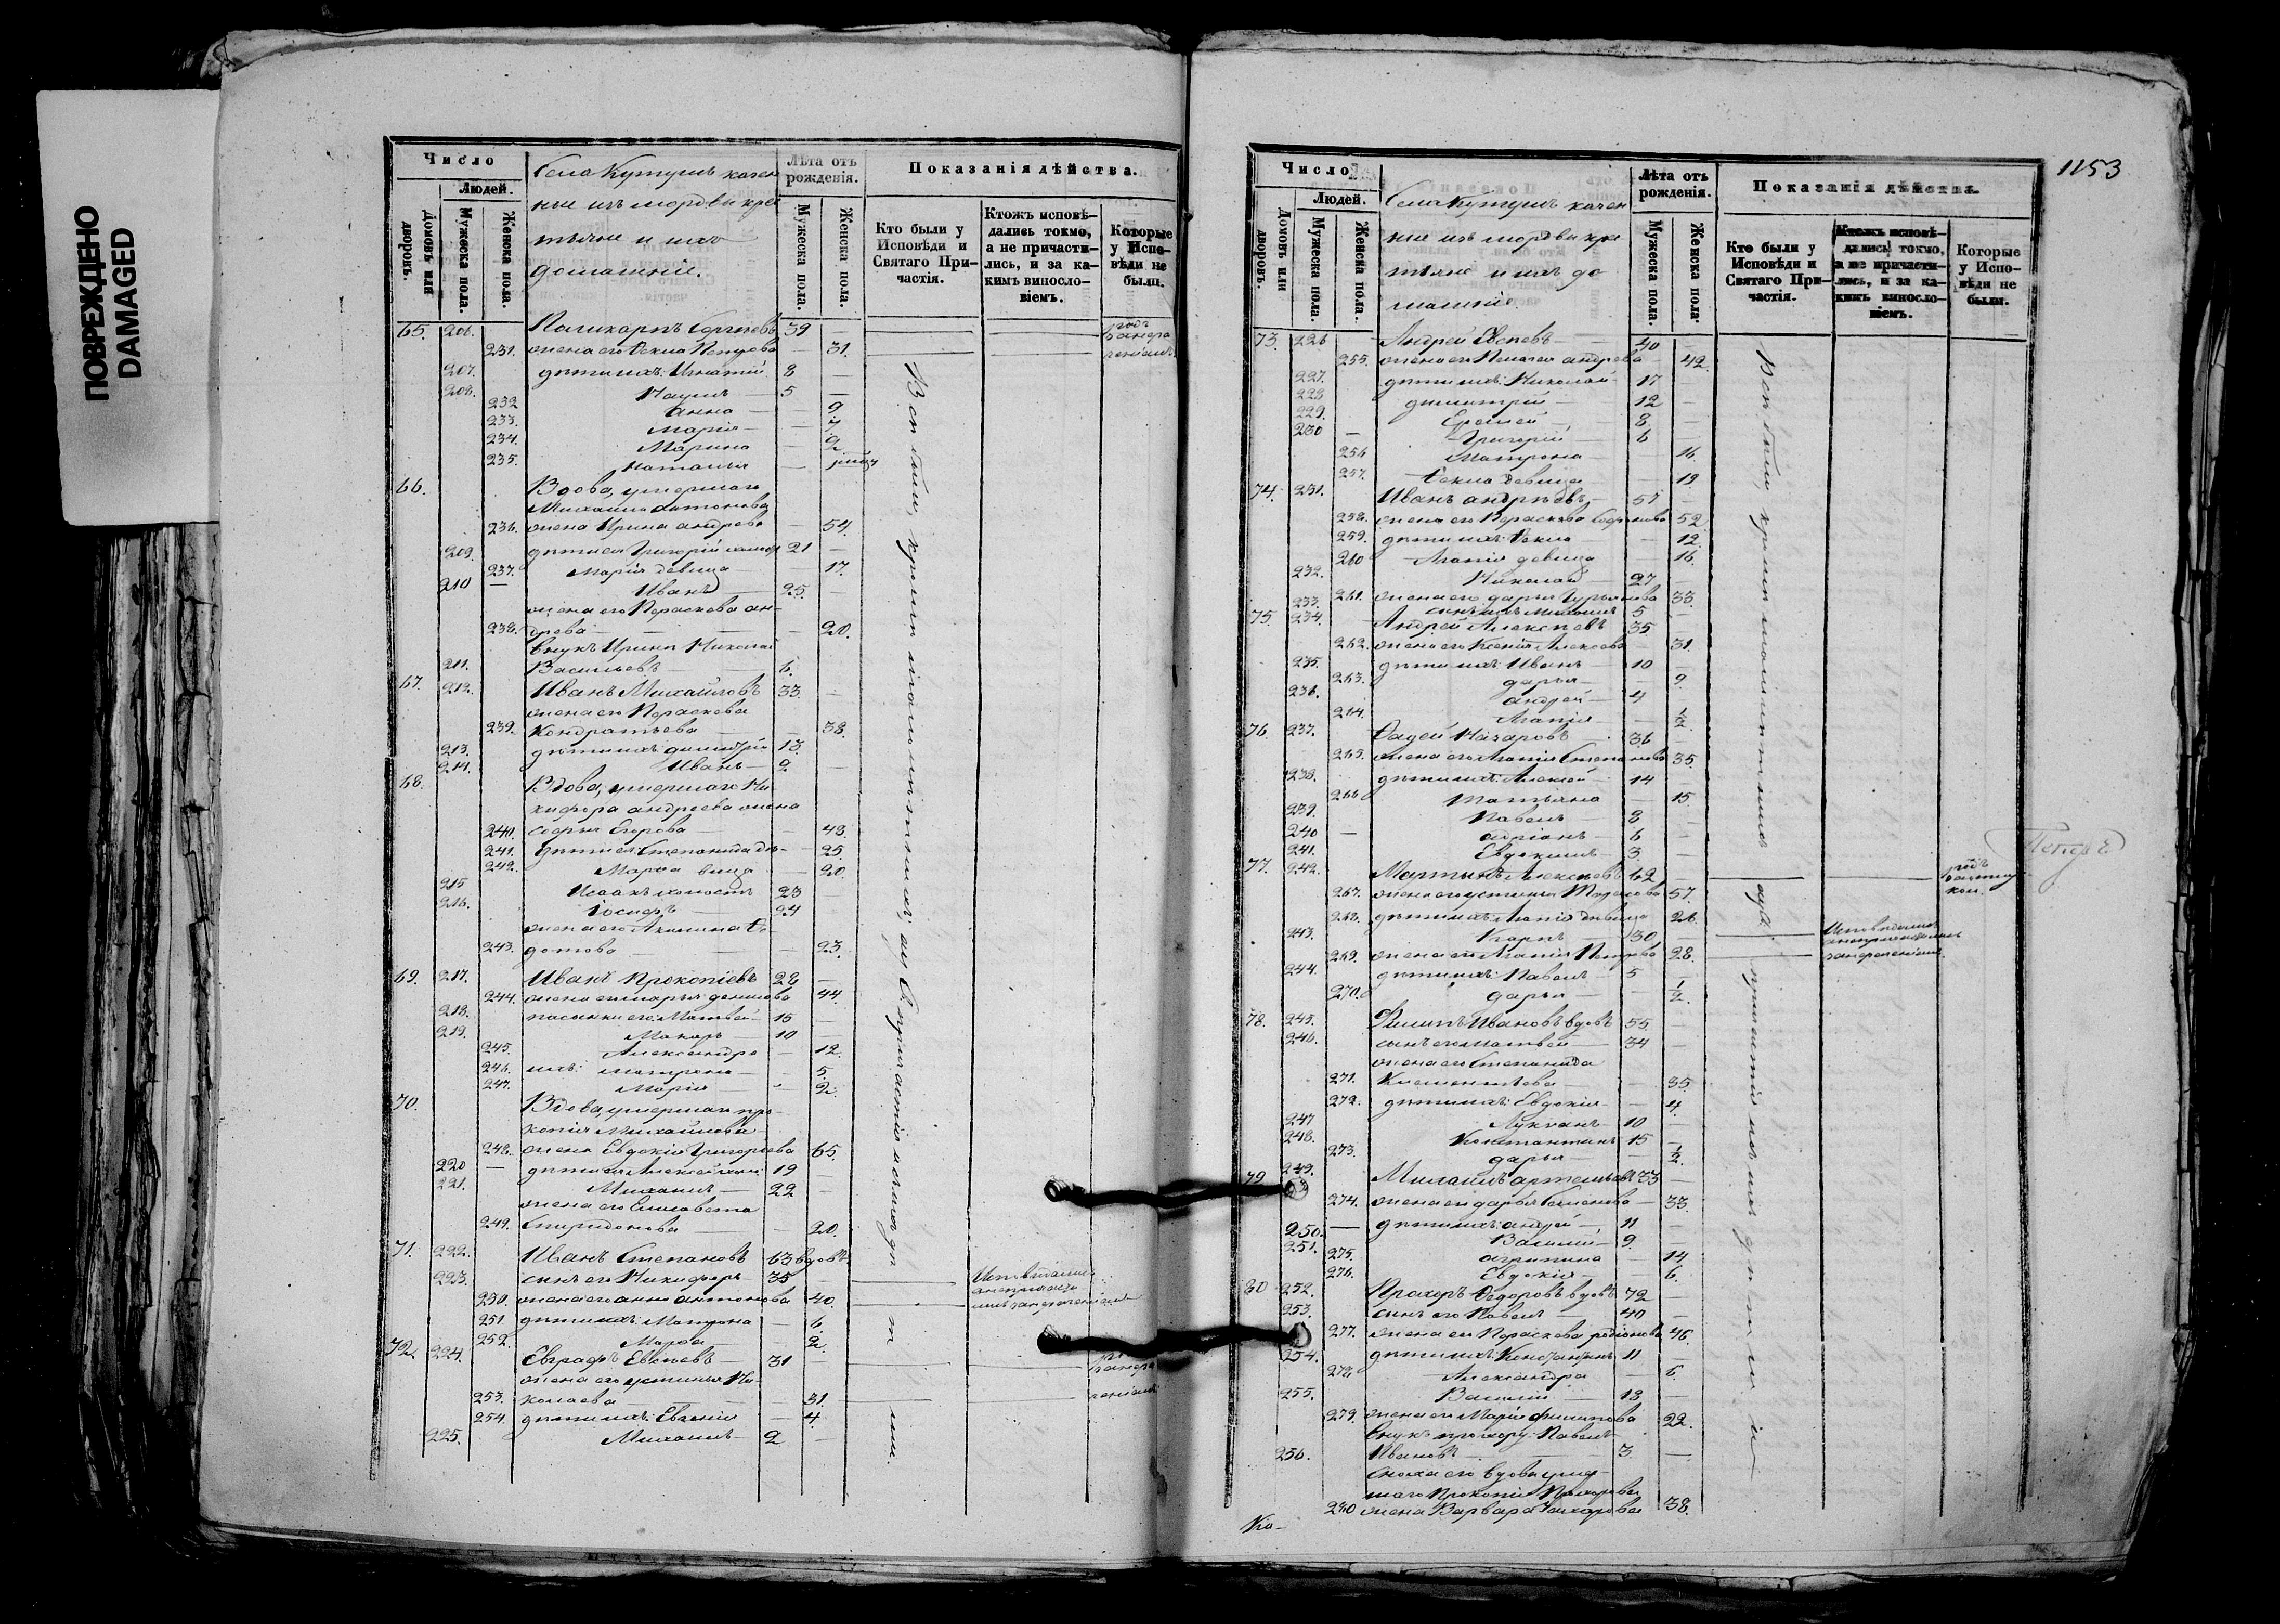 ПОВРЕЖДЕНО
DAMAGED
Число
Людей.
Домовъ или дворовъ.
Мужеска пола.
Женска пола.
Села Кутушъ казен
ные изъ мордвы крес
тьяне и ихъ
домашніе.
Лѣта отъ рожденія.
Мужеска пола.
Женска пола.
Показанія дѣйства.
Кто были у Исповѣди и Святаго Причастія.
Ктожъ исповѣдались токмо, а не причастились, и за какимъ винословіемъ.
Которые у Исповѣди не были.
65. 206. Поликарпъ Сергѣевъ 39
231. жена его Ѳекла Петрова 31.
207. дѣти ихъ: Игнатій 8
208. Наумъ 5
232 Анна 9
233. Марія 7
234. Марина 2
235. Наталья
66. Вдова, умершаго
Михаила Антонова
236. жена Ирина Андреева 54.
209. дѣти ея Григорій 21
237. Марія девица 17.
210 Иванъ 25.
жена его Параскева Ан-
238. дреева 20.
внукъ Ирины Николай
211. Васильевъ 6.
67. 212. Иванъ Михайловъ 33.
жена его Параскева
239. Кондратьева 38.
213. дѣти ихъ: Димитрій 13.
214. Иванъ 2
68. Вдова, умершаго Ни
кифора Андреева жена
240. Софья Егорова 48.
241. дѣти ея: Степанида дѣ- 25.
242. Марѳа вица 20.
215 Исаакъ холостъ 23
216. Іосифъ 24
жена его Акилина Ѳе
243. дотова 23.
69. 217. Иванъ Прокопіевъ 28
244. жена его Марья Денисова 44.
218. пасынки его: Матвей 15
219. Макаръ 10
245. Александра 12.
246. ихъ: Матрона 5.
247. Марія 2.
70. Вдова, умершаго Про-
копія Михайлова
248. жена Евдокія Григорьева 65.
220 дѣти ея Алексей 19
221. Михаилъ 22
жена его Елисавета
249. Спиридонова 20.
71. 222. Иванъ Степановъ 63 вдовъ
223. сынъ его Никифоръ 35
250. жена его Анна Антонова 40.
251. дѣти ихъ: Матрона 6
252. Марѳа 2.
72. 224. Евграфъ Евсѣевъ 31
жена его Устинья Ни-
253. колаева 31.
254. дѣти ихъ: Евгенія 4.
225. Михаилъ 2
Всѣ были, кромѣ малолѣтнихъ, а у Св. Причастія малыя дѣти ихъ
1153
Число
Людей.
Домовъ или дворовъ.
Мужеска пола.
Женска пола.
Села Кутушъ казен
ные изъ мордвы кре
стьяне и ихъ до
машніе.
Лѣта отъ рожденія.
Мужеска пола.
Женска пола.
Показанія дѣйства.
Кто были у Исповѣди и Святаго Причастія.
Ктожъ исповѣдались токмо, а не причастились, и за какимъ винословіемъ.
Которые у Исповѣди не были.
73. 226 Андрей Евсеевъ 40
255. жена его Пелагея Андреева 42.
227. дѣти ихъ: Николай 17
228 Димитрій 12
229. Еремей 8
230 Григорій 6
256 Матрона 16
257. Ѳекла девица 19
74. 231. Иванъ Андреевъ 51
258. жена его Параскева 52.
259. дѣти ихъ: Ѳекла 12.
260 Агапія девица 16.
232. Николай 27
261. жена его Дарья Гурьянова 33.
233. сынъ ихъ Михаилъ 5
75. 234. Андрей Алексѣевъ 35
262. жена его Ксенія Алексеева 31.
235. дѣти ихъ: Иванъ 10
263. Дарья 9
236. Андрей 4
264. Агапія 1/2
76. 237. Ѳадей Назаровъ 36
265. жена его Агапія Степанова 35.
238. дѣти ихъ: Алексей 14
266 Татьяна 15
239. Павелъ 8
240 Адріанъ 6
241. Евдокимъ 3
77. 242. Мартынъ Алексѣевъ 62
267. жена его Устинья 57.
268. дѣти ихъ: Агапія дѣвица 26.
243. Карпъ 30
269. жена его Агапія Петрова 28.
244. дѣти ихъ: Павелъ 5
270. Дарья 1/2.
78. 245. Филипъ Ивановъ вдовъ 55
246. сынъ его Матвей 34
жена его Степанида
271. Климентьева 35
272. дѣти ихъ: Евдокія 4.
247 Лукіанъ 10
248. Константинъ 15
273. Дарья 1/2.
79. 249. Михаилъ Артемьевъ 33
274. жена его Дарья Семенова 33.
250. дѣти ихъ: Андрей 11
251. Василій 9.
275. Агрипина 14
276. Евдокія 6.
80 252. Прохоръ Ѳедоровъ вдовъ 72
253. сынъ его Павелъ 40
277. жена его Параскева Родіонова 46.
254. дѣти ихъ: Константинъ 11
278. Александра 6.
255. Василій 18
279. жена его Марія Филипова 22.
внукъ Прохору: Павелъ
256. Ивановъ 3.
сноха его вдова умер-
шаго Прокопія Прохорова
280 жена Варвара Захарова 38.
Всѣ были, кромѣ малолѣтнихъ а у Св. причастія малыя дѣти